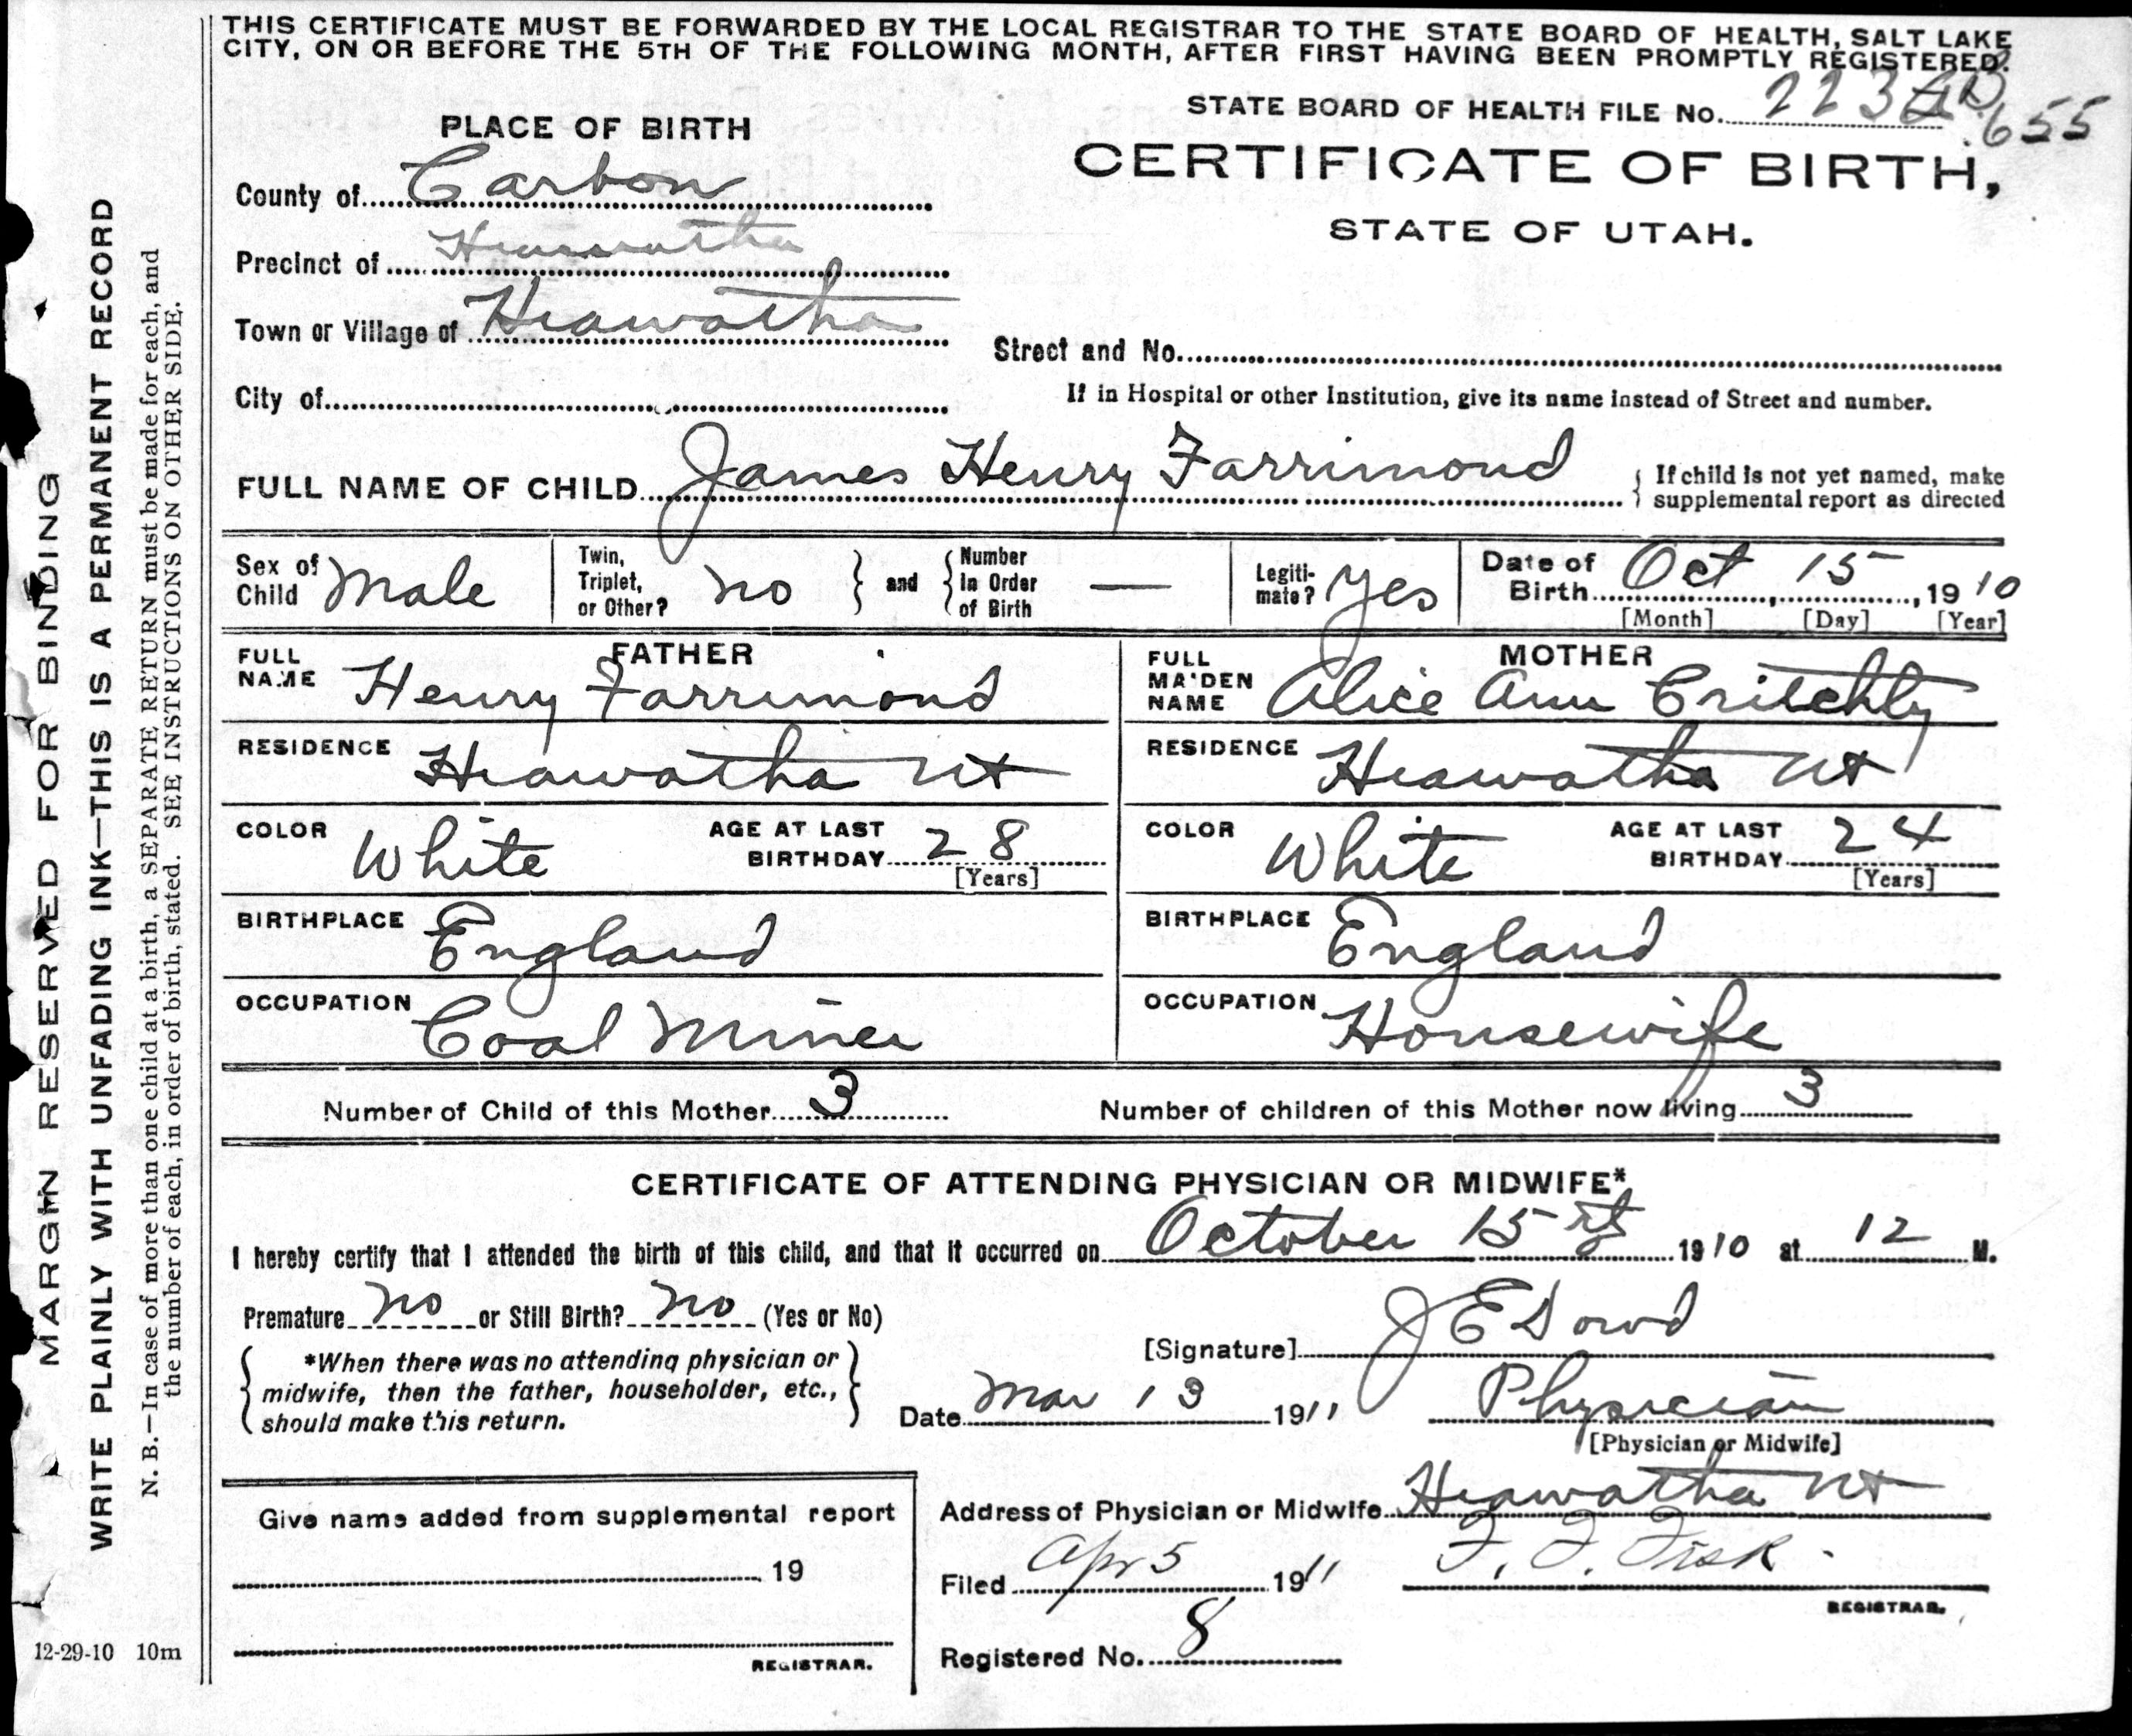 THIS CERTIFICATE MUST BE FORWARDED BY THE LOCAL REGISTRAR TO THE STATE BOARD OF HEALTH, SALT LAKE
CITY, ON OR BEFORE THE 5TH OF THE FOLLOWING MONTH, AFTER FIRST HAVING BEEN PROMPTLY REGISTERED.
STATE BOARD OF HEALTH FILE No. 223
655
PLACE OF BIRTH
CERTIFICATE OF BIRTH,
STATE OF UTAH.
County of Carbon
Precinct of Hiawatha
Town or Village of Hiawatha
Street and No.
City of
If in Hospital or other Institution, give its name instead of Street and number.
FULL NAME OF CHILD James Henry Farrimond
If child is not yet named, make
supplemental report as directed
Sex of Child Male
Twin, Triplet, or Other? no
and
Number in Order of Birth —
Legitimate? Yes
Date of Birth Oct 15, 1910
[Month] [Day] [Year]
FATHER
FULL NAME Henry Farrimond
RESIDENCE Hiawatha Ut
COLOR White
AGE AT LAST BIRTHDAY 28
[Years]
BIRTHPLACE England
OCCUPATION Coal Miner
MOTHER
FULL MAIDEN NAME Alice Ann Critchly
RESIDENCE Hiawatha Ut
COLOR White
AGE AT LAST BIRTHDAY 24
[Years]
BIRTHPLACE England
OCCUPATION Housewife
Number of Child of this Mother 3
Number of children of this Mother now living 3
CERTIFICATE OF ATTENDING PHYSICIAN OR MIDWIFE*
I hereby certify that I attended the birth of this child, and that it occurred on October 15 1910 at 12 M.
Premature no or Still Birth? no (Yes or No)
*When there was no attending physician or
midwife, then the father, householder, etc.,
should make this return.
[Signature] J E Dowd
Date Mar 13 1911
Physician
[Physician or Midwife]
Give name added from supplemental report
19
REGISTRAR.
Address of Physician or Midwife Hiawatha Ut
Filed Apr 5 1911
F. F. Fisk.
REGISTRAR.
Registered No. 8
MARGIN RESERVED FOR BINDING
WRITE PLAINLY WITH UNFADING INK—THIS IS A PERMANENT RECORD
N. B.—In case of more than one child at a birth, a SEPARATE RETURN must be made for each, and
the number of each, in order of birth, stated. SEE INSTRUCTIONS ON OTHER SIDE.
12-29-10 10m